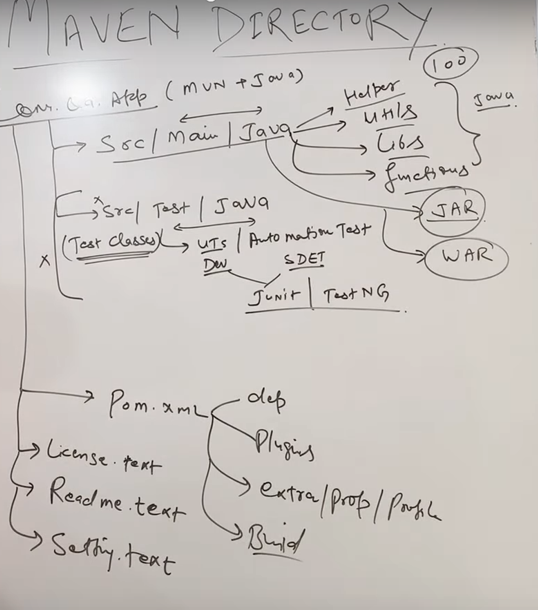 MAVEN DIRECTORY
com.Qa.App (MVN + Java)
100
Src/Main/Java
Helper
Utils
Libs
functions
Java
x
Src/Test/Java
(Test classes)
UTs/Automation Test
Dev
SDET
Junit | TestNG
JAR
WAR
x
Pom.xml
dep
Plugins
extra/Prop/Profile
Build
License.text
Readme.text
Setting.text